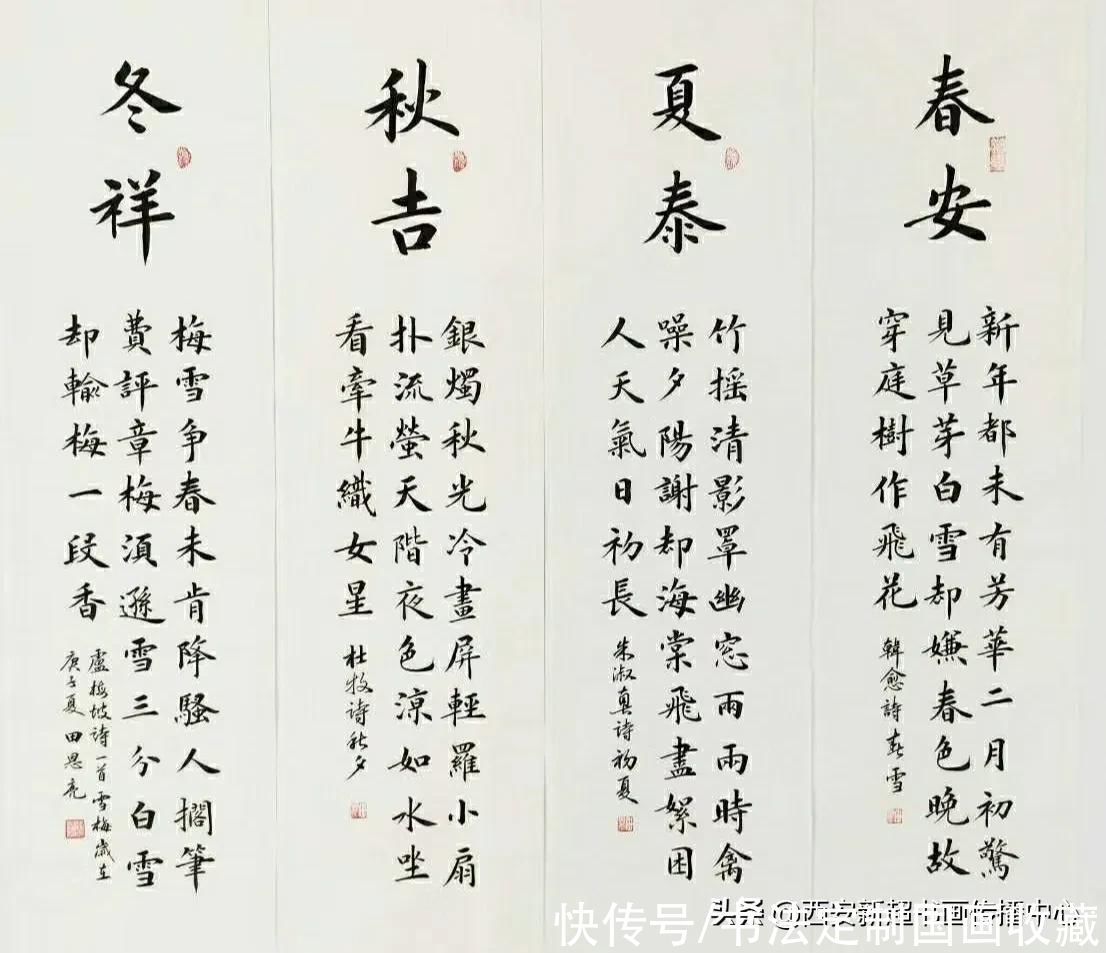 春安
新年都未有芳華二月初驚
見草芽白雪却嫌春色晚故
穿庭樹作飛花
韓愈詩春雪
夏泰
竹摇清影罩幽窓雨雨時禽
噪夕陽謝却海棠飛盡絮困
人天氣日初長
朱淑真诗初夏
秋吉
銀燭秋光冷畫屏輕羅小扇
扑流螢天階夜色涼如水坐
看牽牛織女星
杜牧诗秋夕
冬祥
梅雪争春未肯降騷人擱筆
費評章梅須遜雪三分白雪
却輸梅一段香
盧梅坡诗一首雪梅歲在
庚子夏田恩亮
头条 @西安新超书画传播中心
快传号/书法定制国画收藏